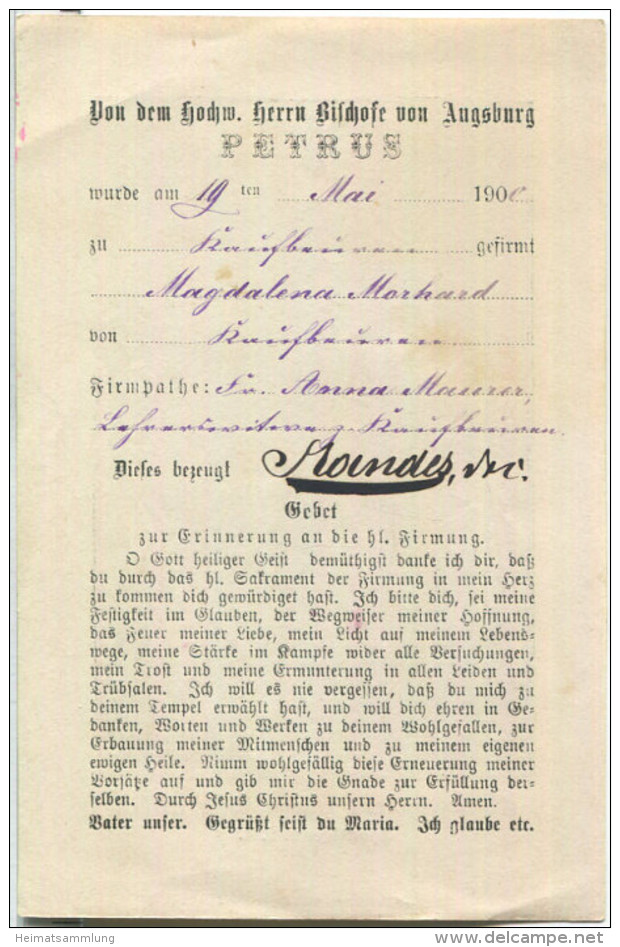 Von dem Hochw. Herrn Bischofe von Augsburg
PETRUS
wurde am 19 ten Mai 1900
zu Kaufbeuren gefirmt
Magdalena Morhard
von Kaufbeuren
Firmpathe: Fr. Anna Maurer,
Lehrerswitwe z. Kaufbeuren.
Dieses bezeugt Landes, Dec.
Gebet
zur Erinnerung an die hl. Firmung.
O Gott heiliger Geist demüthigst danke ich dir, daß
du durch das hl. Sakrament der Firmung in mein Herz
zu kommen dich gewürdiget hast. Ich bitte dich, sei meine
Festigkeit im Glauden, der Wegweiser meiner Hoffnung,
das Feuer meiner Liebe, mein Licht auf meinem Lebens-
wege, meine Stärke im Kampfe wider alle Versuchungen,
mein Trost und meine Ermunterung in allen Leiden und
Trübsalen. Ich will es nie vergessen, daß du mich zu
deinem Tempel erwählt hast, und will dich ehren in Ge-
danken, Worten und Werken zu deinem Wohlgefallen, zur
Erbauung meiner Mitmenschen und zu meinem eigenen
ewigen Heile. Nimm wohlgefällig diese Erneuerung meiner
Vorsätze auf und gib mir die Gnade zur Erfüllung der-
selben. Durch Jesus Christus unsern Herrn. Amen.
Vater unser. Gegrüßt seist du Maria. Ich glaube etc.
Heimatsammlung
www.delcampe.net